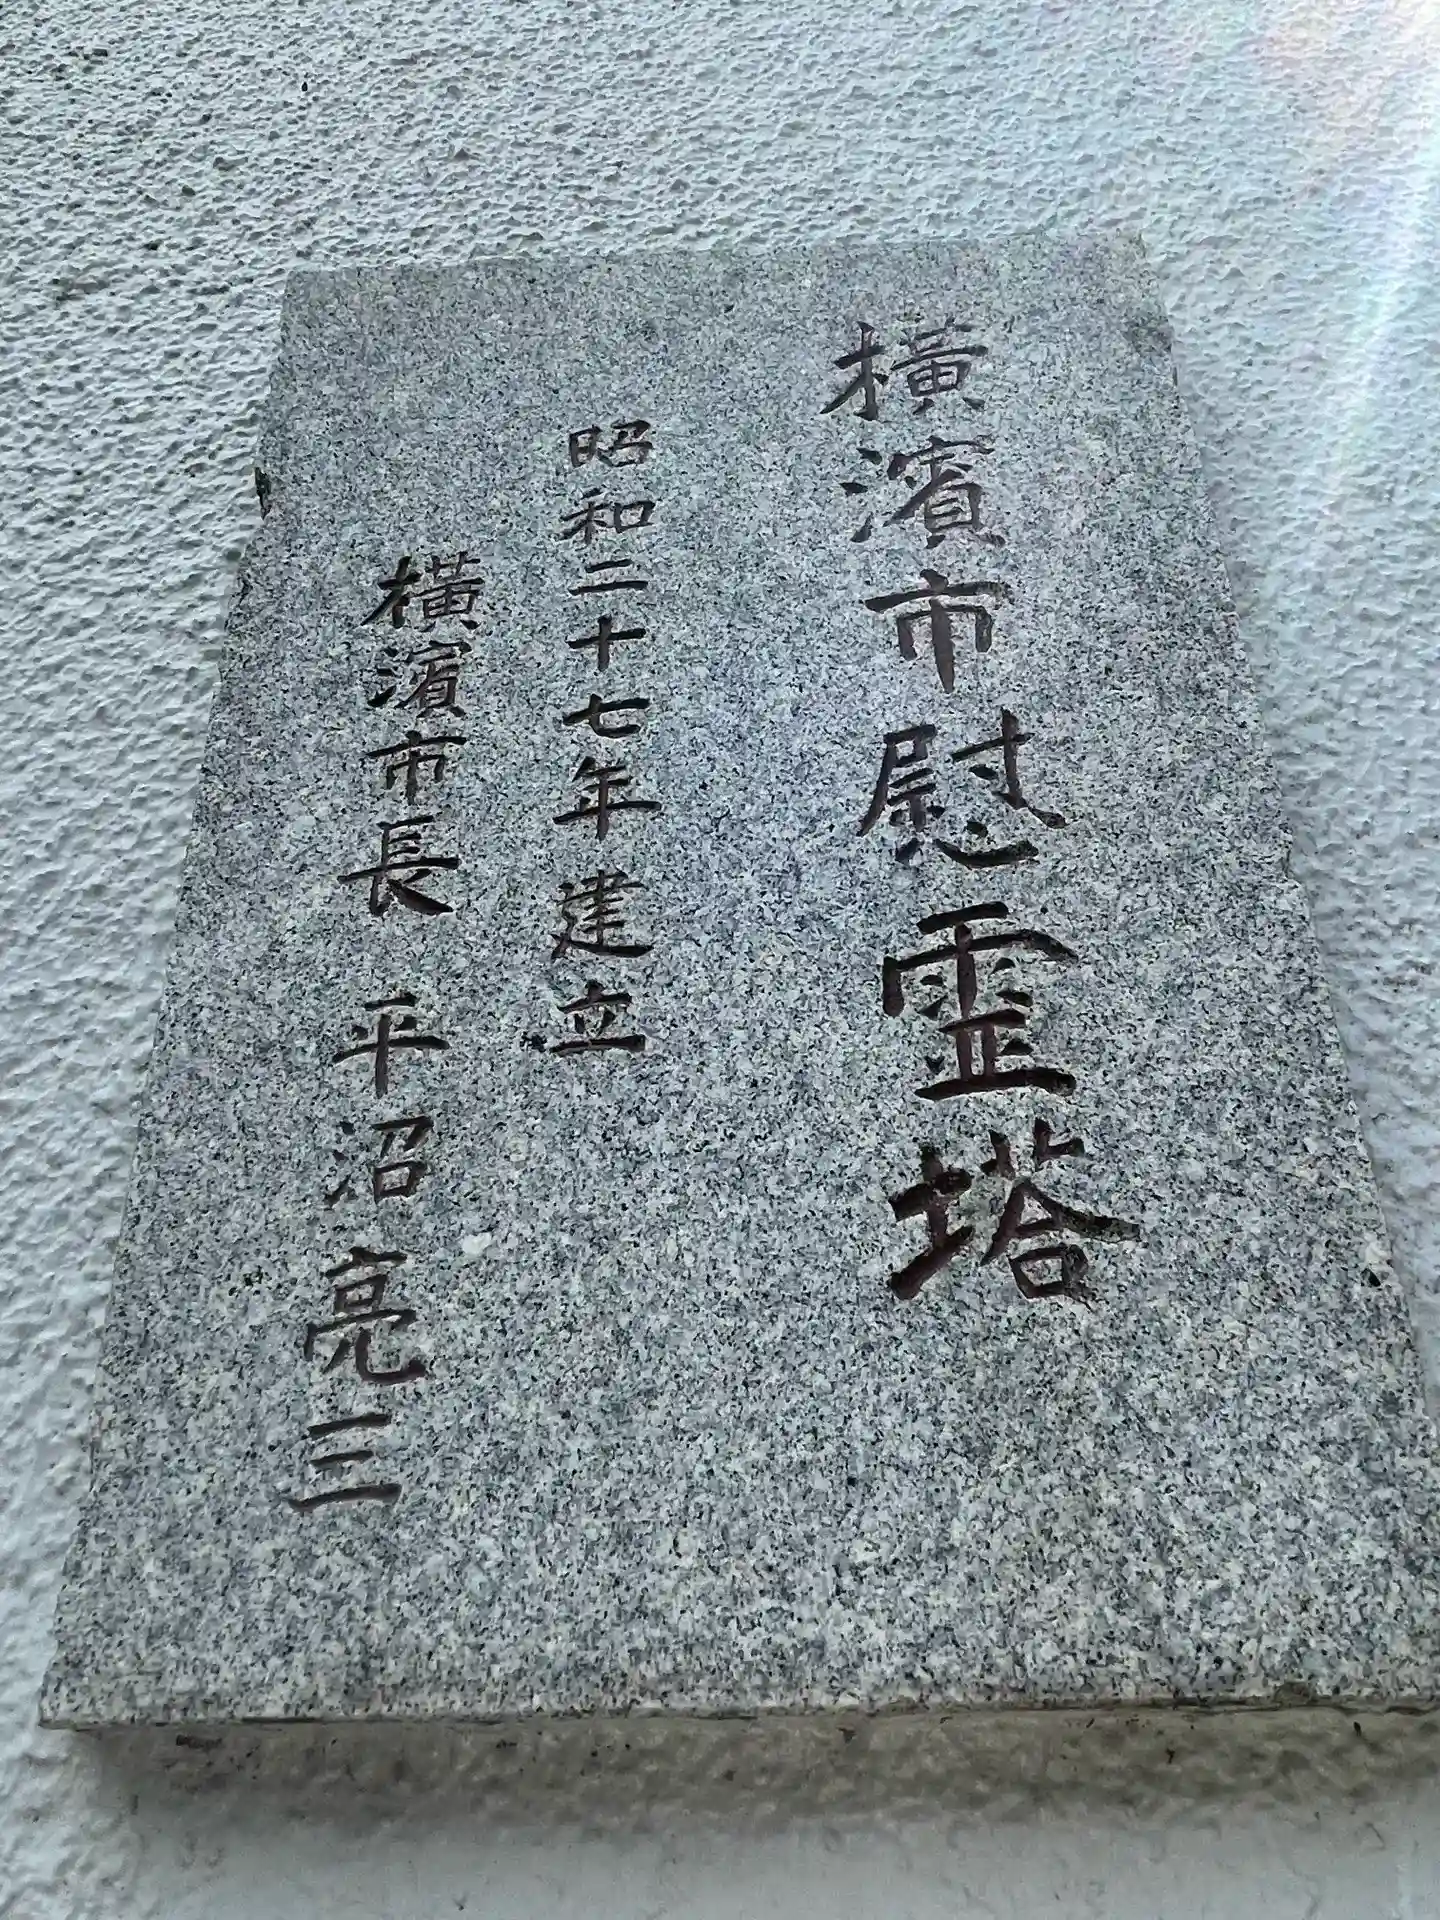 橫濱市慰霊塔
昭和二十七年建立
橫濱市長 平沼亮三